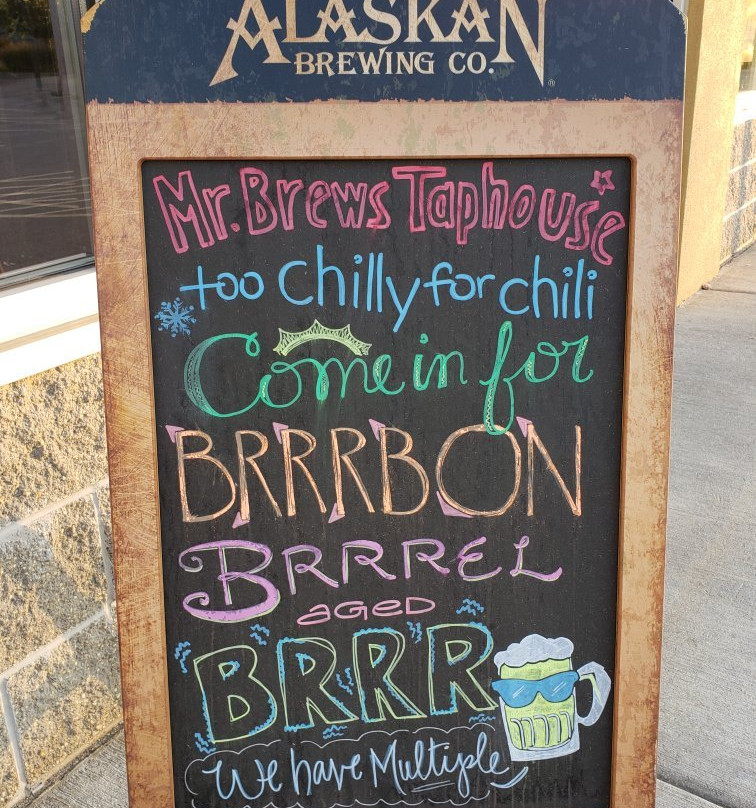 ALASKAN
BREWING CO.®
Mr. Brews Taphouse
too chilly for chili
Come in for
BRRRBON
BRRREL
AGED
BRRR
We have Multiple